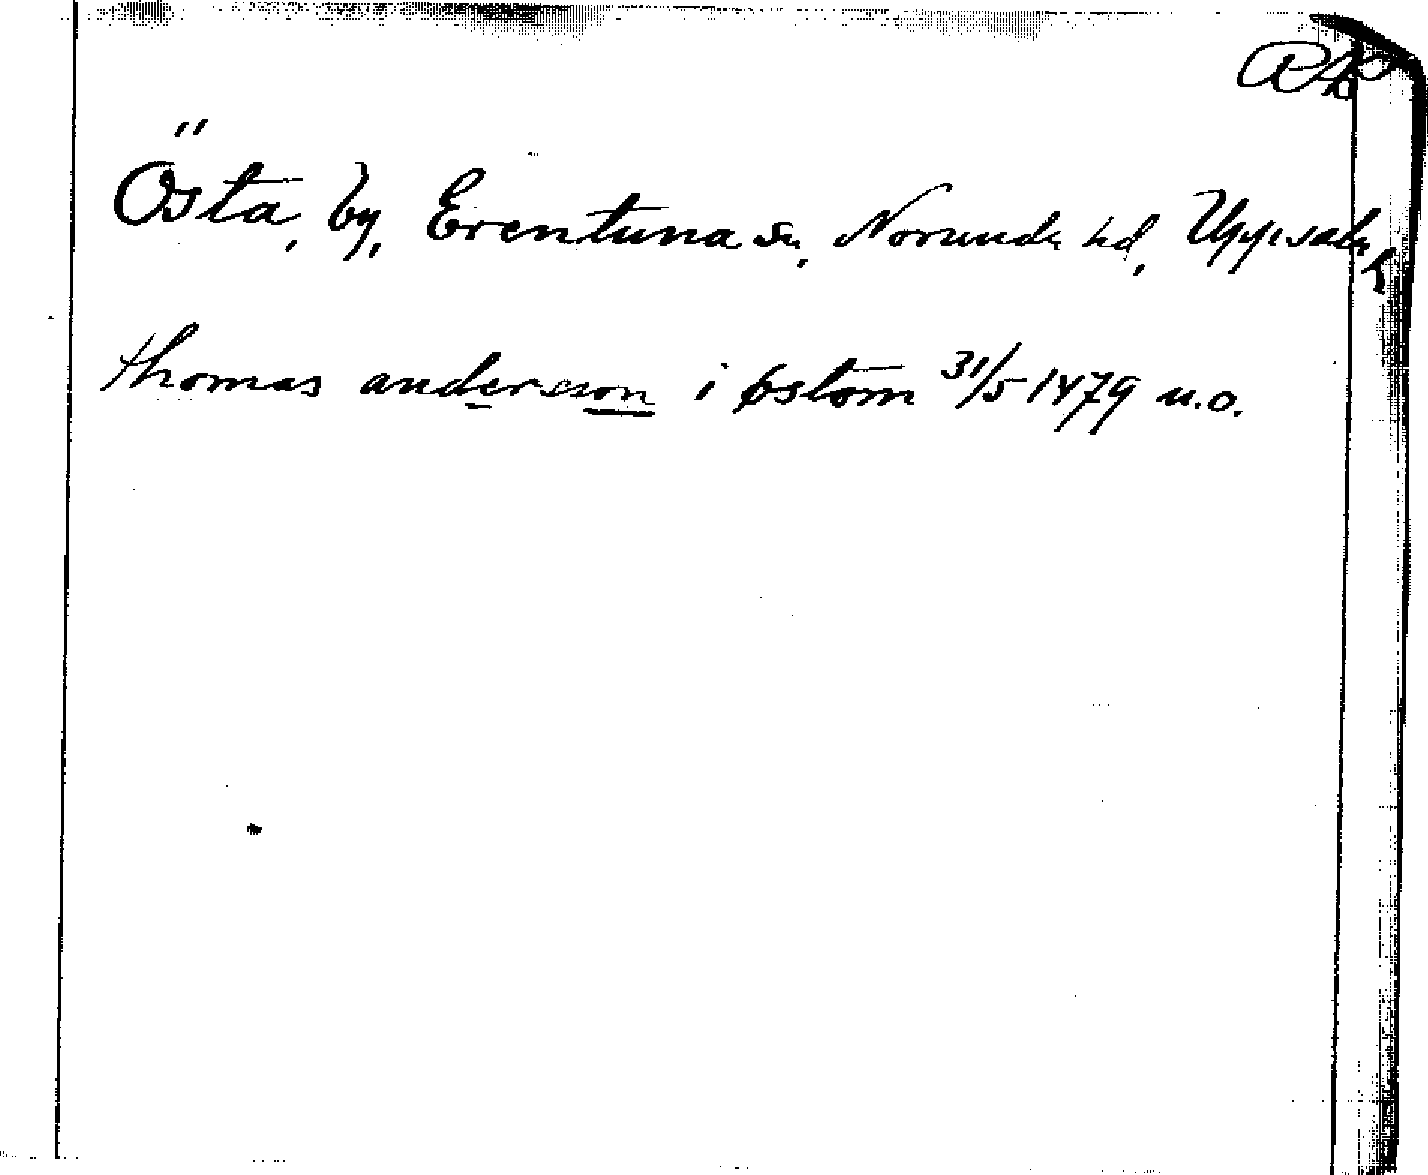 Östa, by, Erentuna sn, Norunda hd, Uppsala l
thomas anderson i østom 31/5 1479 u.o.